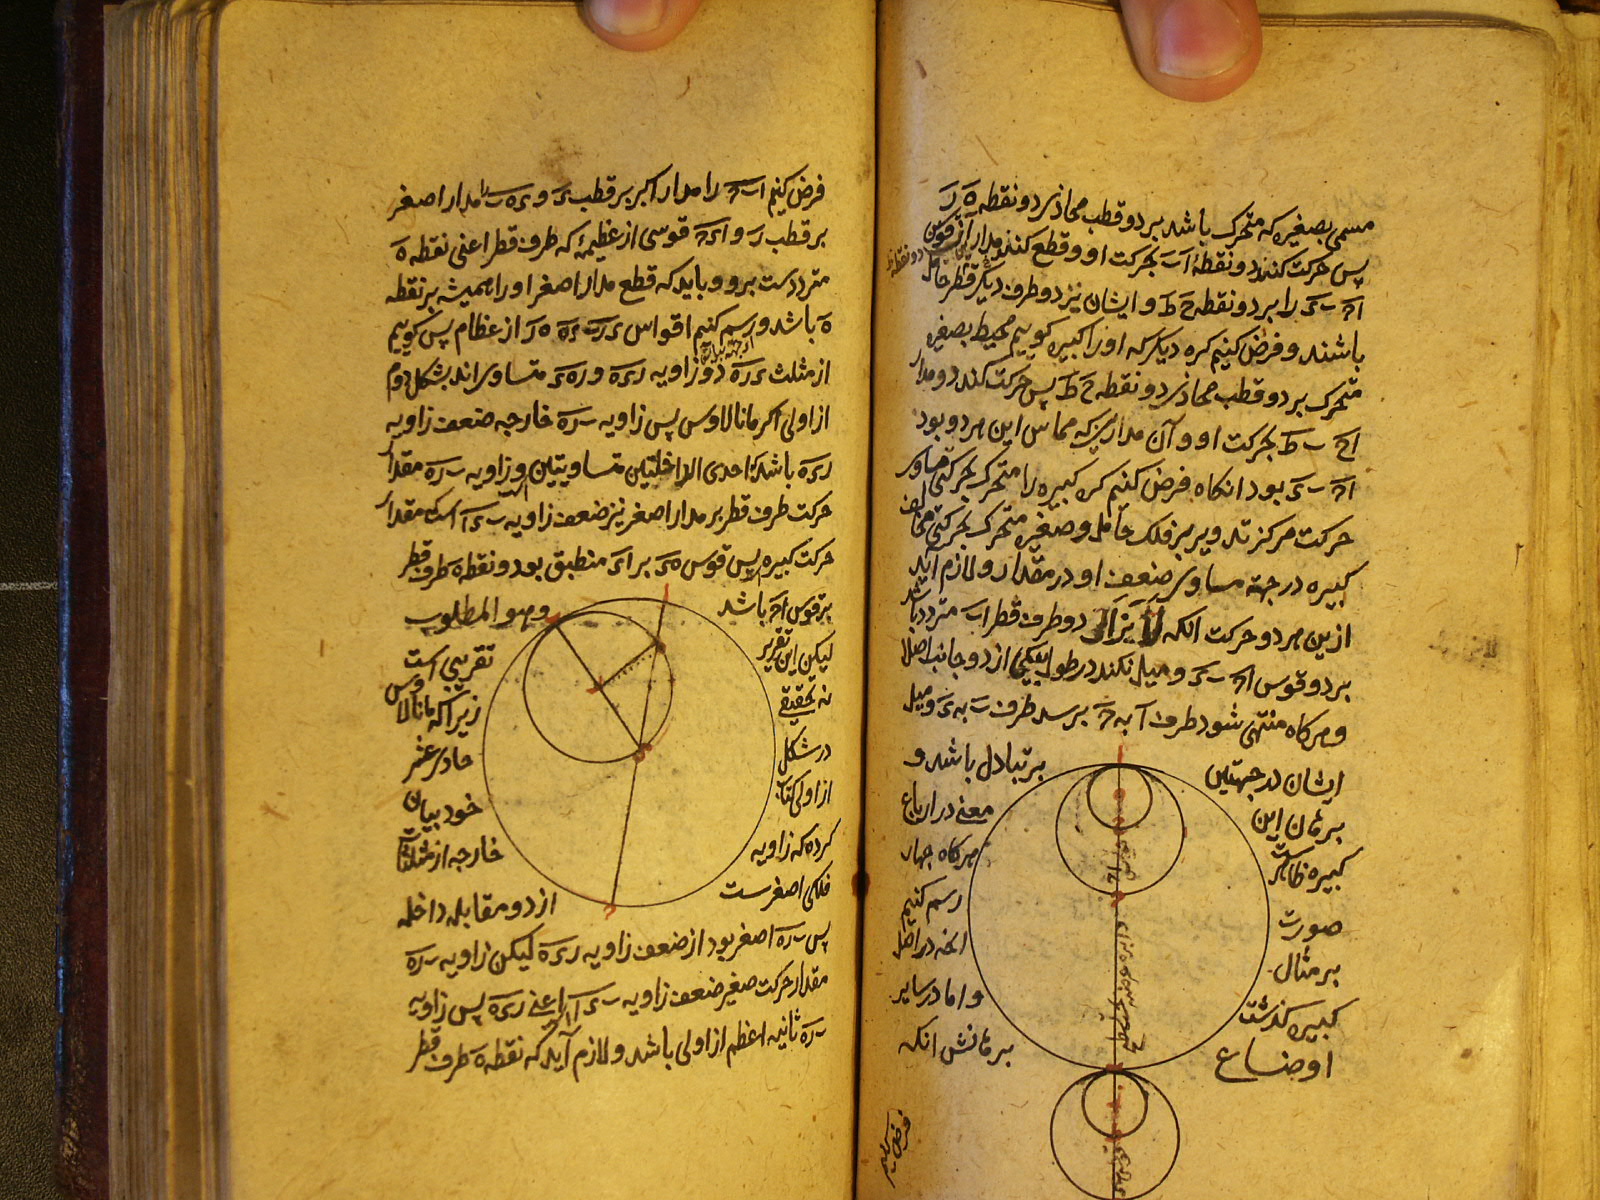 مسمی بصغیره که متحرک باشد بر دو قطب محاذی دو نقطه ه ر
پس حرکت کنند دو نقطهٔ ا ب بحرکت او و قطع کنند مدار آن قوس
دو نقطه
ا ح ب ء را بر دو نقطه ح ط و ایشان نیز دو طرف دیگر قطر حامل
باشند و فرض کنیم کره دیگر که او را کبیره گوییم محیط بصغیره
متحرک بر دو قطب محاذی دو نقطه ح ط پس حرکت کند دو مدار
ا ح ب ط بحرکت او و آن مداری که مماس این هر دو بود
ا ح ب ء بود انکاه فرض کنیم کره کبیره را متحرک بحرکتی مساوی
حرکت مرکز تدویر بر فلک حامل و صغیره متحرک بحرکتی مخالف
کبیره در جهة مساوی ضعف او در مقدار و لازم آید
ازین هر دو حرکت انکه لا یزال دو طرف قطر ا ب متردد باشد
بر دو قوس ا ح ب ء و میل نکند در طول بیکی از دو جانب اصلا
و هرکاه منتهی شود طرف آ به ح برسد طرف ب به ء و میل
ایشان در جهتین
بر تبادل باشد و
برهان این
معنی در ارباع
کبیره ظاهرست
هرکاه چهار
صورت
رسم کنیم
بر مثال
انخه در اصل
کبیره کذشت
و اما در سایر
اوضاع
برهانش انکه
فرض کنیم
فرض کنیم ا ب ح را مدار اکبر بر قطب ء و ء ه ب را مدار اصغر
بر قطب ر و ا ء ح قوسی از عظیمهٔ که طرف قطر اعنی نقطه ه
مترددست برو و باید که قطع مدار اصغر او را همیشه بر نقطه
ه باشد و رسم کنیم اقواس ء ر ب ء ه ه ر از عظام پس کوییم
از مثلث ء ر ه دو زاویه ر ء ه و ر ه ء متساوی اند بشکل دوم
از اولی اکر مانالاوس پس زاویه ب ر ه خارجه ضعف زاویه
ر ء ه باشد احدی الداخلتین متساویتین و زاویه ب ر ه مقدار
حرکت طرف قطر بر مدار اصغر نیز ضعف زاویه ب ء آ است که مقدار
حرکت کبیره پس قوس ه ء بر ا ء منطبق بود و نقطه ه طرف قطر
بر قوس ا ح باشد
و هو المطلوب
لیکن این تقریر
تقریبی است
نه تحقیقی
زیرا که مانالاوس
در شکل
حادی عشر
از اولی کتاب
خود بیان
کرده که زاویه
خارجه از مثلث
فلکی اصغرست
از دو مقابله داخله
پس ب ر ه اصغر بود از ضعف زاویه ر ء ه لیکن زاویه ب ر ه
مقدار حرکت صغیر ضعف زاویه ب ء آ اعنی ر ء ه پس زاویه
ب ر ه ثانیه اعظم از اولی باشد و لازم آید که نقطه ه طرف قطر